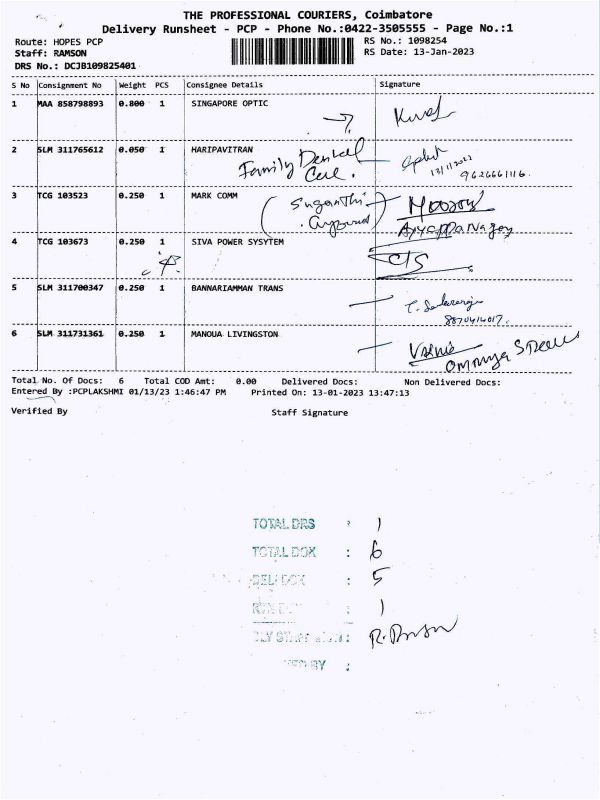 THE PROFESSIONAL COURIERS, Coimbatore
Delivery Runsheet - PCP - Phone No.:0422-3505555 - Page No.:1
Route: HOPES PCP RS No.: 1098254
Staff: RAMSON RS Date: 13-Jan-2023
DRS No.: DCJB109825401
S No Consignment No Weight PCS Consignee Details Signature
1 MAA 858798893 0.800 1 SINGAPORE OPTIC
2 SLM 311765612 0.050 1 HARIPAVITRAN
Family Dental
Care.
13/1/2022
9626661116.
3 TCG 103523 0.250 1 MARK COMM
Suganthi
4 TCG 103673 0.250 1 SIVA POWER SYSYTEM
C/S
5 SLM 311700347 0.250 1 BANNARIAMMAN TRANS
8870414017.
6 SLM 311731361 0.250 1 MANOUA LIVINGSTON
Total No. Of Docs: 6 Total COD Amt: 0.00 Delivered Docs: Non Delivered Docs:
Entered By :PCPLAKSHMI 01/13/23 1:46:47 PM Printed On: 13-01-2023 13:47:13
Verified By Staff Signature
TOTAL DRS : 1
TOTAL DOX : 6
DELI DOX : 5
: 1
R. Ramson